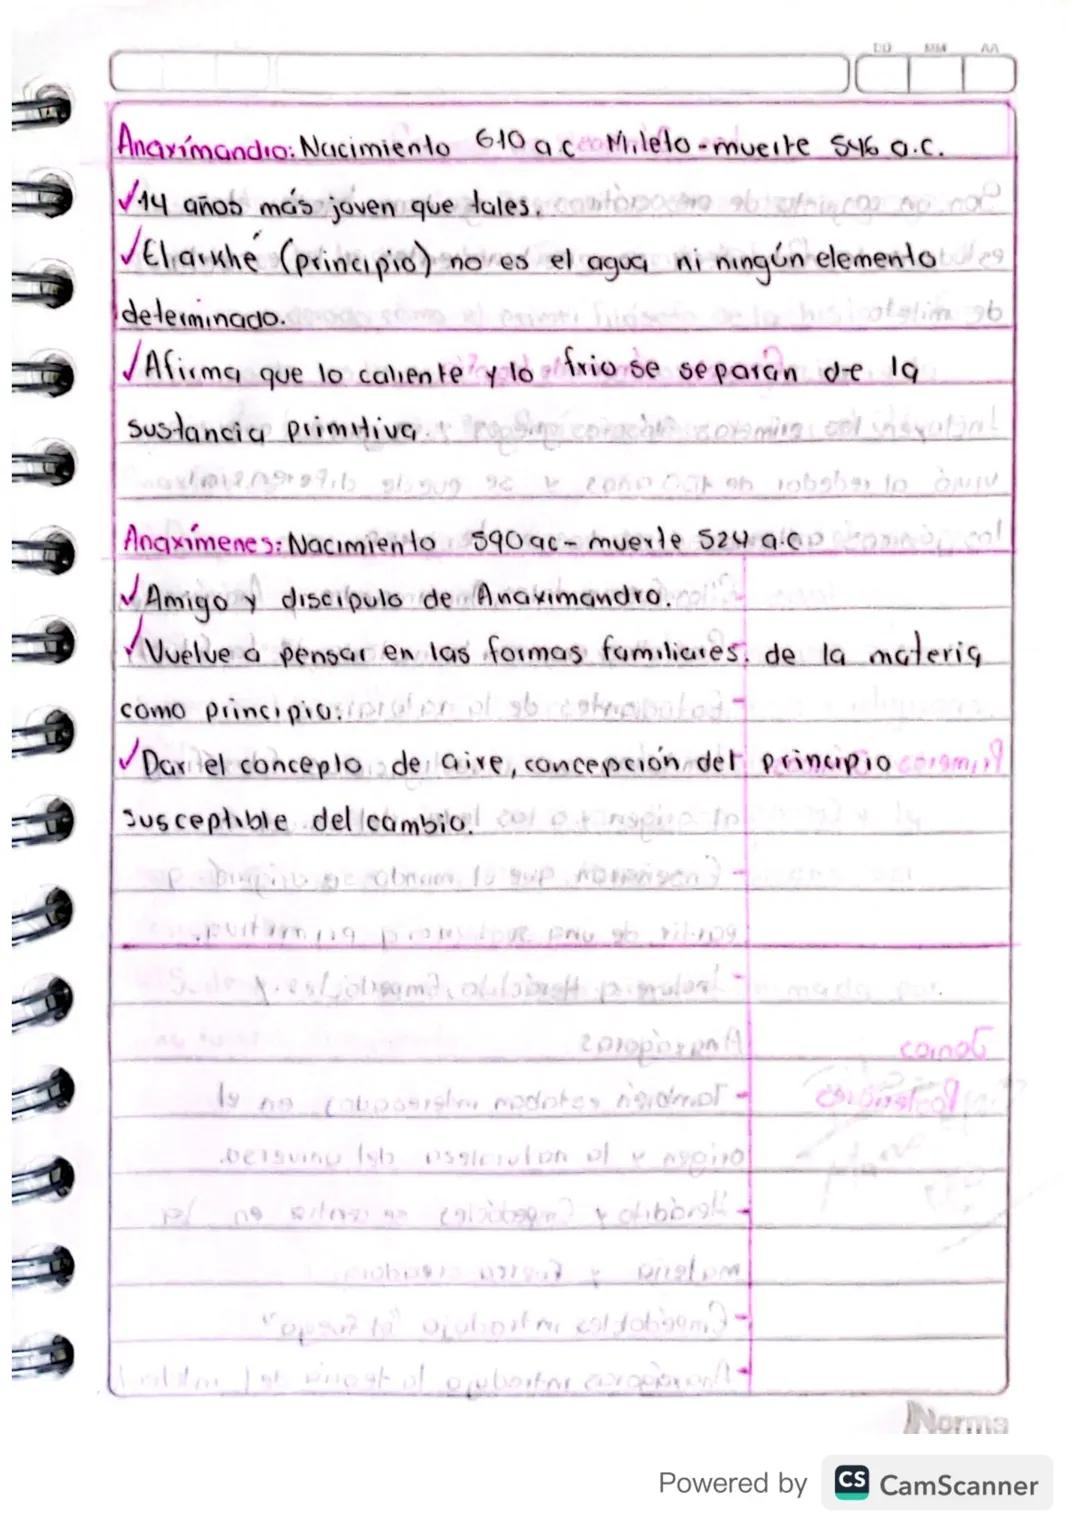 DD MM AA
Anaxímandro: Nacimiento 610 a.c Mileto - muerte 546 a.c.
✓14 años más joven que tales.
✓El arkhé (principio) no es el agua ni ningún elemento
determinado.
✓Afirma que lo caliente y lo frio se separan de la
sustancia primitiva.
Anaxímenes: Nacimiento 590 ac - muerte 524 a.c
✓Amigo y discipulo de Anaximandro.
✓Vuelve a pensar en las formas familiares de la materia
como principio.
✓Dar el concepto de aire, concepción del principio
susceptible del cambio.
Norma
Powered by CS CamScanner